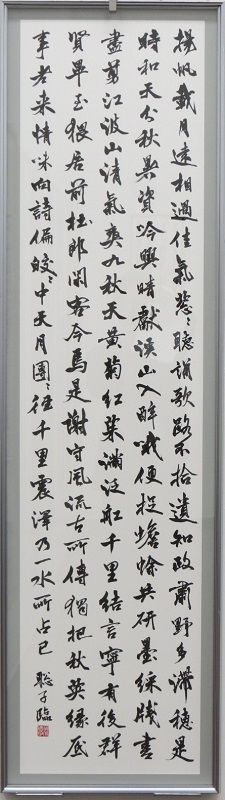 揚帆載月遠相過佳氣蔥〻聽誦歌路不拾遺知政肅野多滯穗是
時和天分秋暑資吟興晴獻溪山入醉哦便捉蟾蜍共研墨綵牋書
盡剪江波山清氣爽九秋天黃菊紅茱滿泛船千里結言寧有後群
賢畢至猥居前杜郎閑客今焉是謝守風流古所傳獨把秋英緣底
事老来情味向詩偏皎〻中天月團〻徑千里震澤乃一水所占已 聡子臨